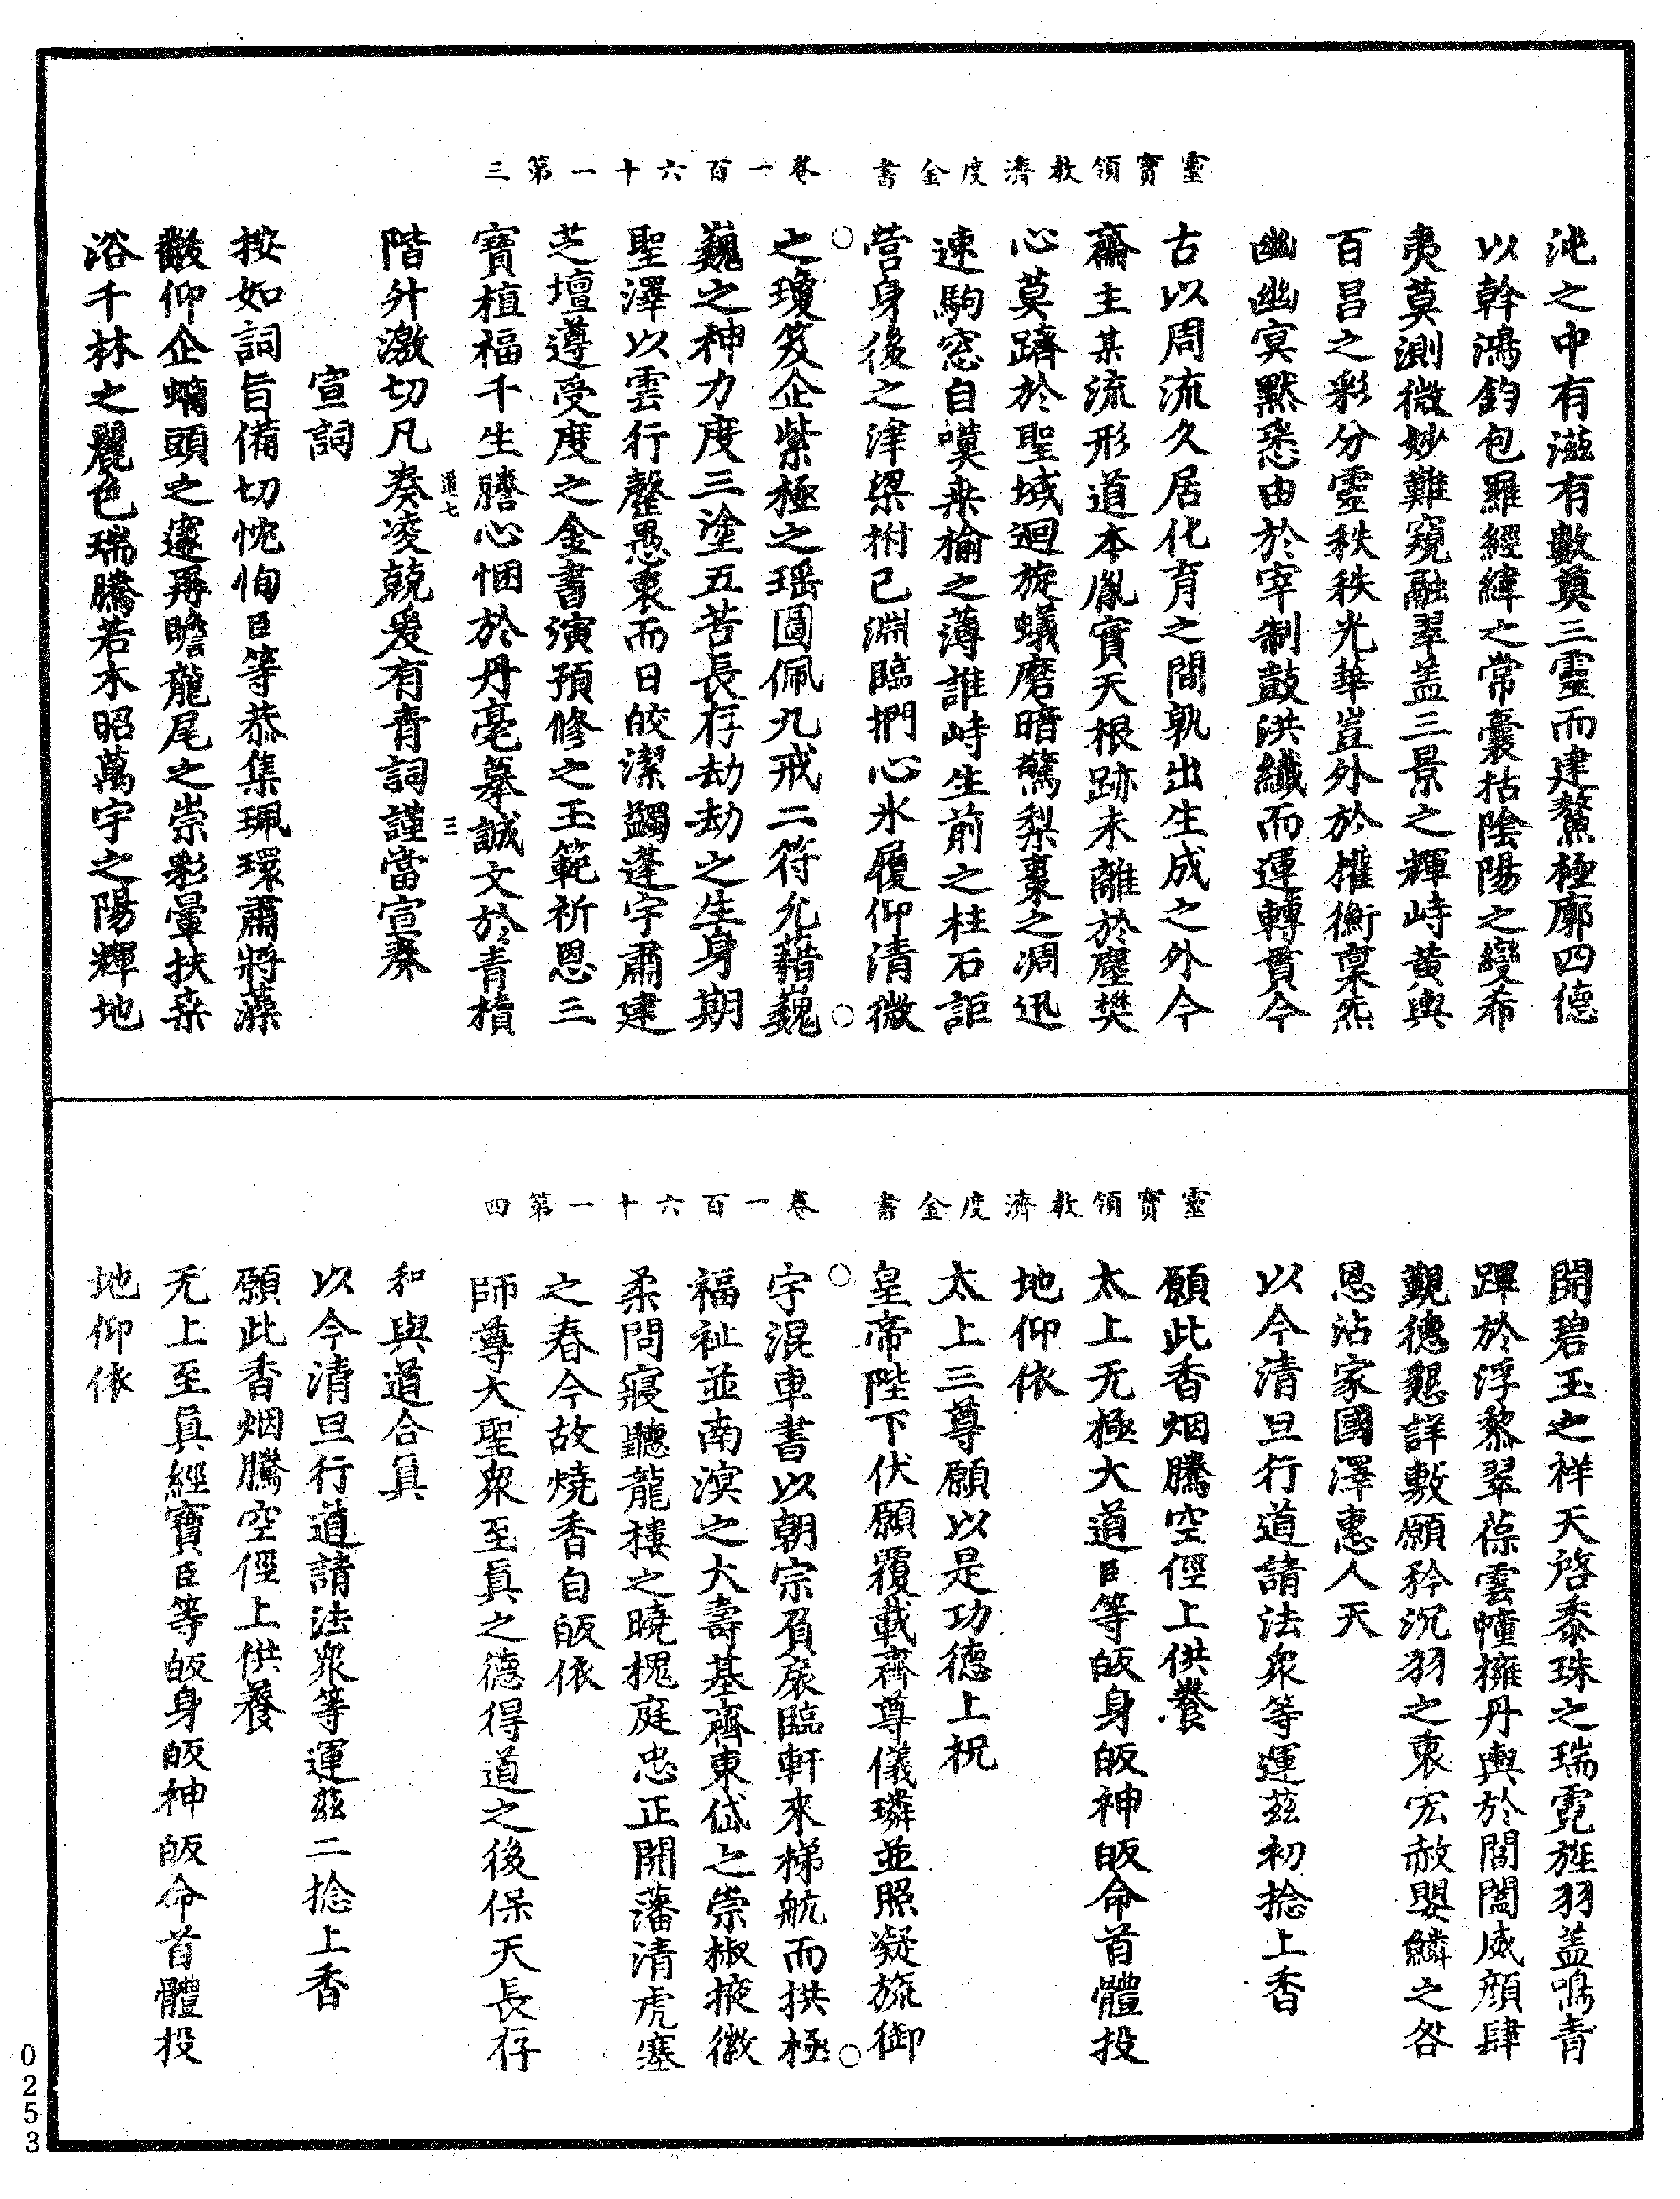 靈寶領教濟度金書　卷一百六十一第三
沌之中有滋有數奠三靈而建鰲極廓四德
以幹鴻鈞包羅經緯之常囊括陰陽之變希
夷莫測微妙難窺融翠盖三景之輝峙黃輿
百昌之彩分靈秩秩光華豈外於權衡稟炁
幽幽冥默悉由於宰制鼓洪纖而運轉貫今
古以周流久居化育之間孰出生成之外今
齋主某流形道本胤實天根跡未離於塵樊
心莫躋於聖域迴旋蟻磨暗驚梨棗之凋迅
速駒窓自嘆桑榆之薄誰峙生前之柱石詎
營身後之津梁拊己淵臨捫心氷履仰清微
之瓊笈企紫極之瑶圖佩九戒二符允藉巍
巍之神力度三塗五苦長存劫劫之生身期
聖澤以雲行罄愚衷而日皎潔蠲蓬宇肅建
芝壇遵受度之金書演預修之玉範祈恩三
寶植福千生謄心悃於丹毫摹誠文於青櫝
道七　三
階升激切凡奏凌兢爰有青詞謹當宣奏
宣詞
按如詞旨備切忱恂臣等恭集珮環肅將藻
黻仰企螭頭之邃再瞻龍尾之崇彩暈扶桒
浴千林之麗色瑞騰若木昭萬宇之陽輝地
靈寶領教濟度金書　卷一百六十一第四
開碧玉之祥天啓黍珠之瑞霓旌羽盖鳴青
蹕於浮黎翠葆雲幢擁丹輿於閶闔咸顔肆
覲德懇詳敷願矜沉羽之衷宏赦嬰鱗之咎
恩沾家國澤惠人天
以今清旦行道請法衆等運茲初捻上香
願此香烟騰空俓上供養
太上无極大道臣等皈身皈神皈命首體投
地仰依
太上三尊願以是功德上祝
皇帝陛下伏願覆載齊尊儀璘並照凝旒御
宇混車書以朝宗負扆臨軒來梯航而拱極
福祉並南溟之大壽基齊東岱之崇椒掖徽
柔問寢聽龍樓之曉槐庭忠正開藩清虎塞
之春今故燒香自皈依
師尊大聖衆至眞之德得道之後保天長存
和與道合眞
以今清旦行道請法衆等運茲二捻上香
願此香烟騰空俓上供養
无上至眞經寶臣等皈身皈神皈命首體投
地仰依
0253